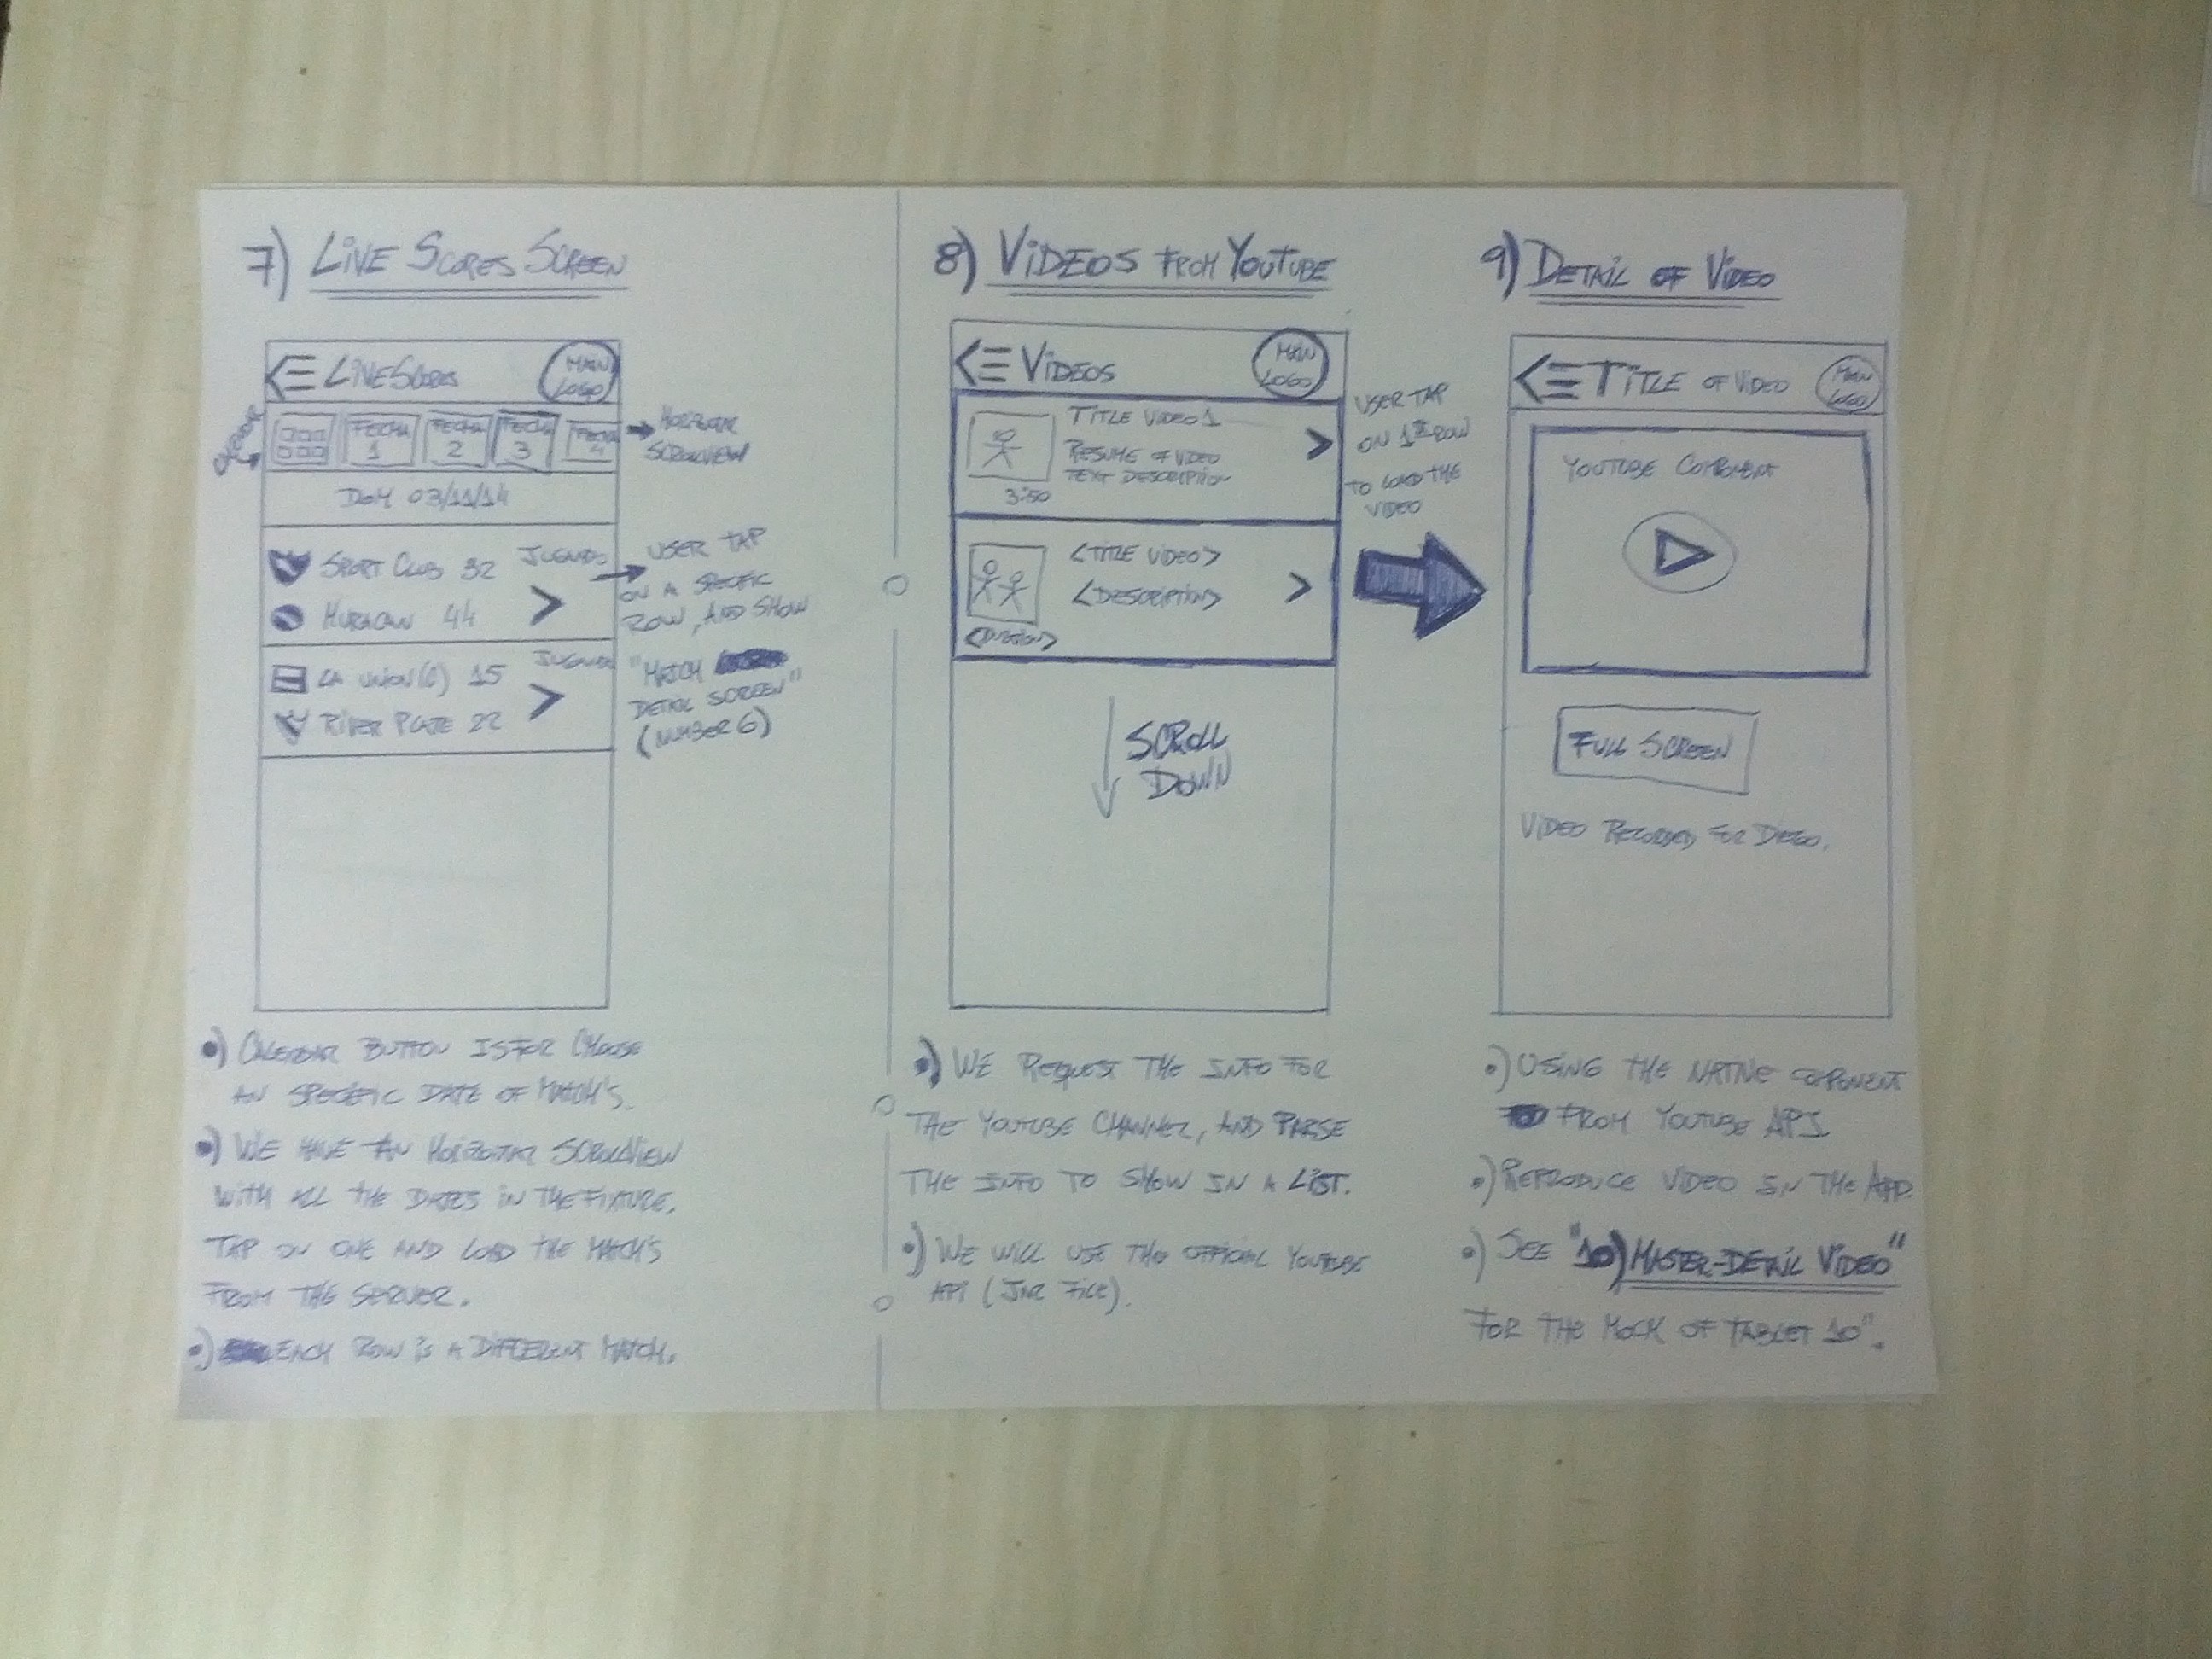 7) LIVE SCORES SCREEN
LIVESCORES
MAIN
LOGO
CALENDAR
FECHA
1
FECHA
2
FECHA
3
FECHA
4
HORIZONTAL
SCROLLVIEW
DOM 03/11/14
SPORT CLUB 32
JUGANDO
HURACAN 44
LA UNION(C) 15
JUGANDO
RIVER PLATE 22
USER TAP
ON A SPECIFIC
ROW, AND SHOW
"MATCH
DETAIL SCREEN"
(NUMBER 6)
•) CALENDAR BUTTON IS FOR CHOOSE
AN SPECIFIC DATE OF MATCH'S.
•) WE HAVE AN HORIZONTAL SCROLLVIEW
WITH ALL THE DATES IN THE FIXTURE.
TAP ON ONE AND LOAD THE MATCH'S
FROM THE SERVER.
•) EACH ROW IS A DIFFERENT MATCH.
8) VIDEOS FROM YOUTUBE
VIDEOS
MAIN
LOGO
TITLE VIDEO 1
RESUME OF VIDEO
TEXT DESCRIPTION
3:50
<TITLE VIDEO>
<DESCRIPTION>
<DURATION>
SCROLL
DOWN
USER TAP
ON 1st ROW
TO LOAD THE
VIDEO
•) WE REQUEST THE INFO FOR
THE YOUTUBE CHANNEL, AND PARSE
THE INFO TO SHOW IN A LIST.
•) WE WILL USE THE OFFICIAL YOUTUBE
API (JAR FILE).
9) DETAIL OF VIDEO
TITLE OF VIDEO
MAIN
LOGO
YOUTUBE COMPONENT
FULL SCREEN
VIDEO RECORDED FOR DIEGO.
•) USING THE NATIVE COMPONENT
FROM YOUTUBE API
•) REPRODUCE VIDEO IN THE APP.
•) SEE "10) MASTER-DETAIL VIDEO"
FOR THE MOCK OF TABLET 10".